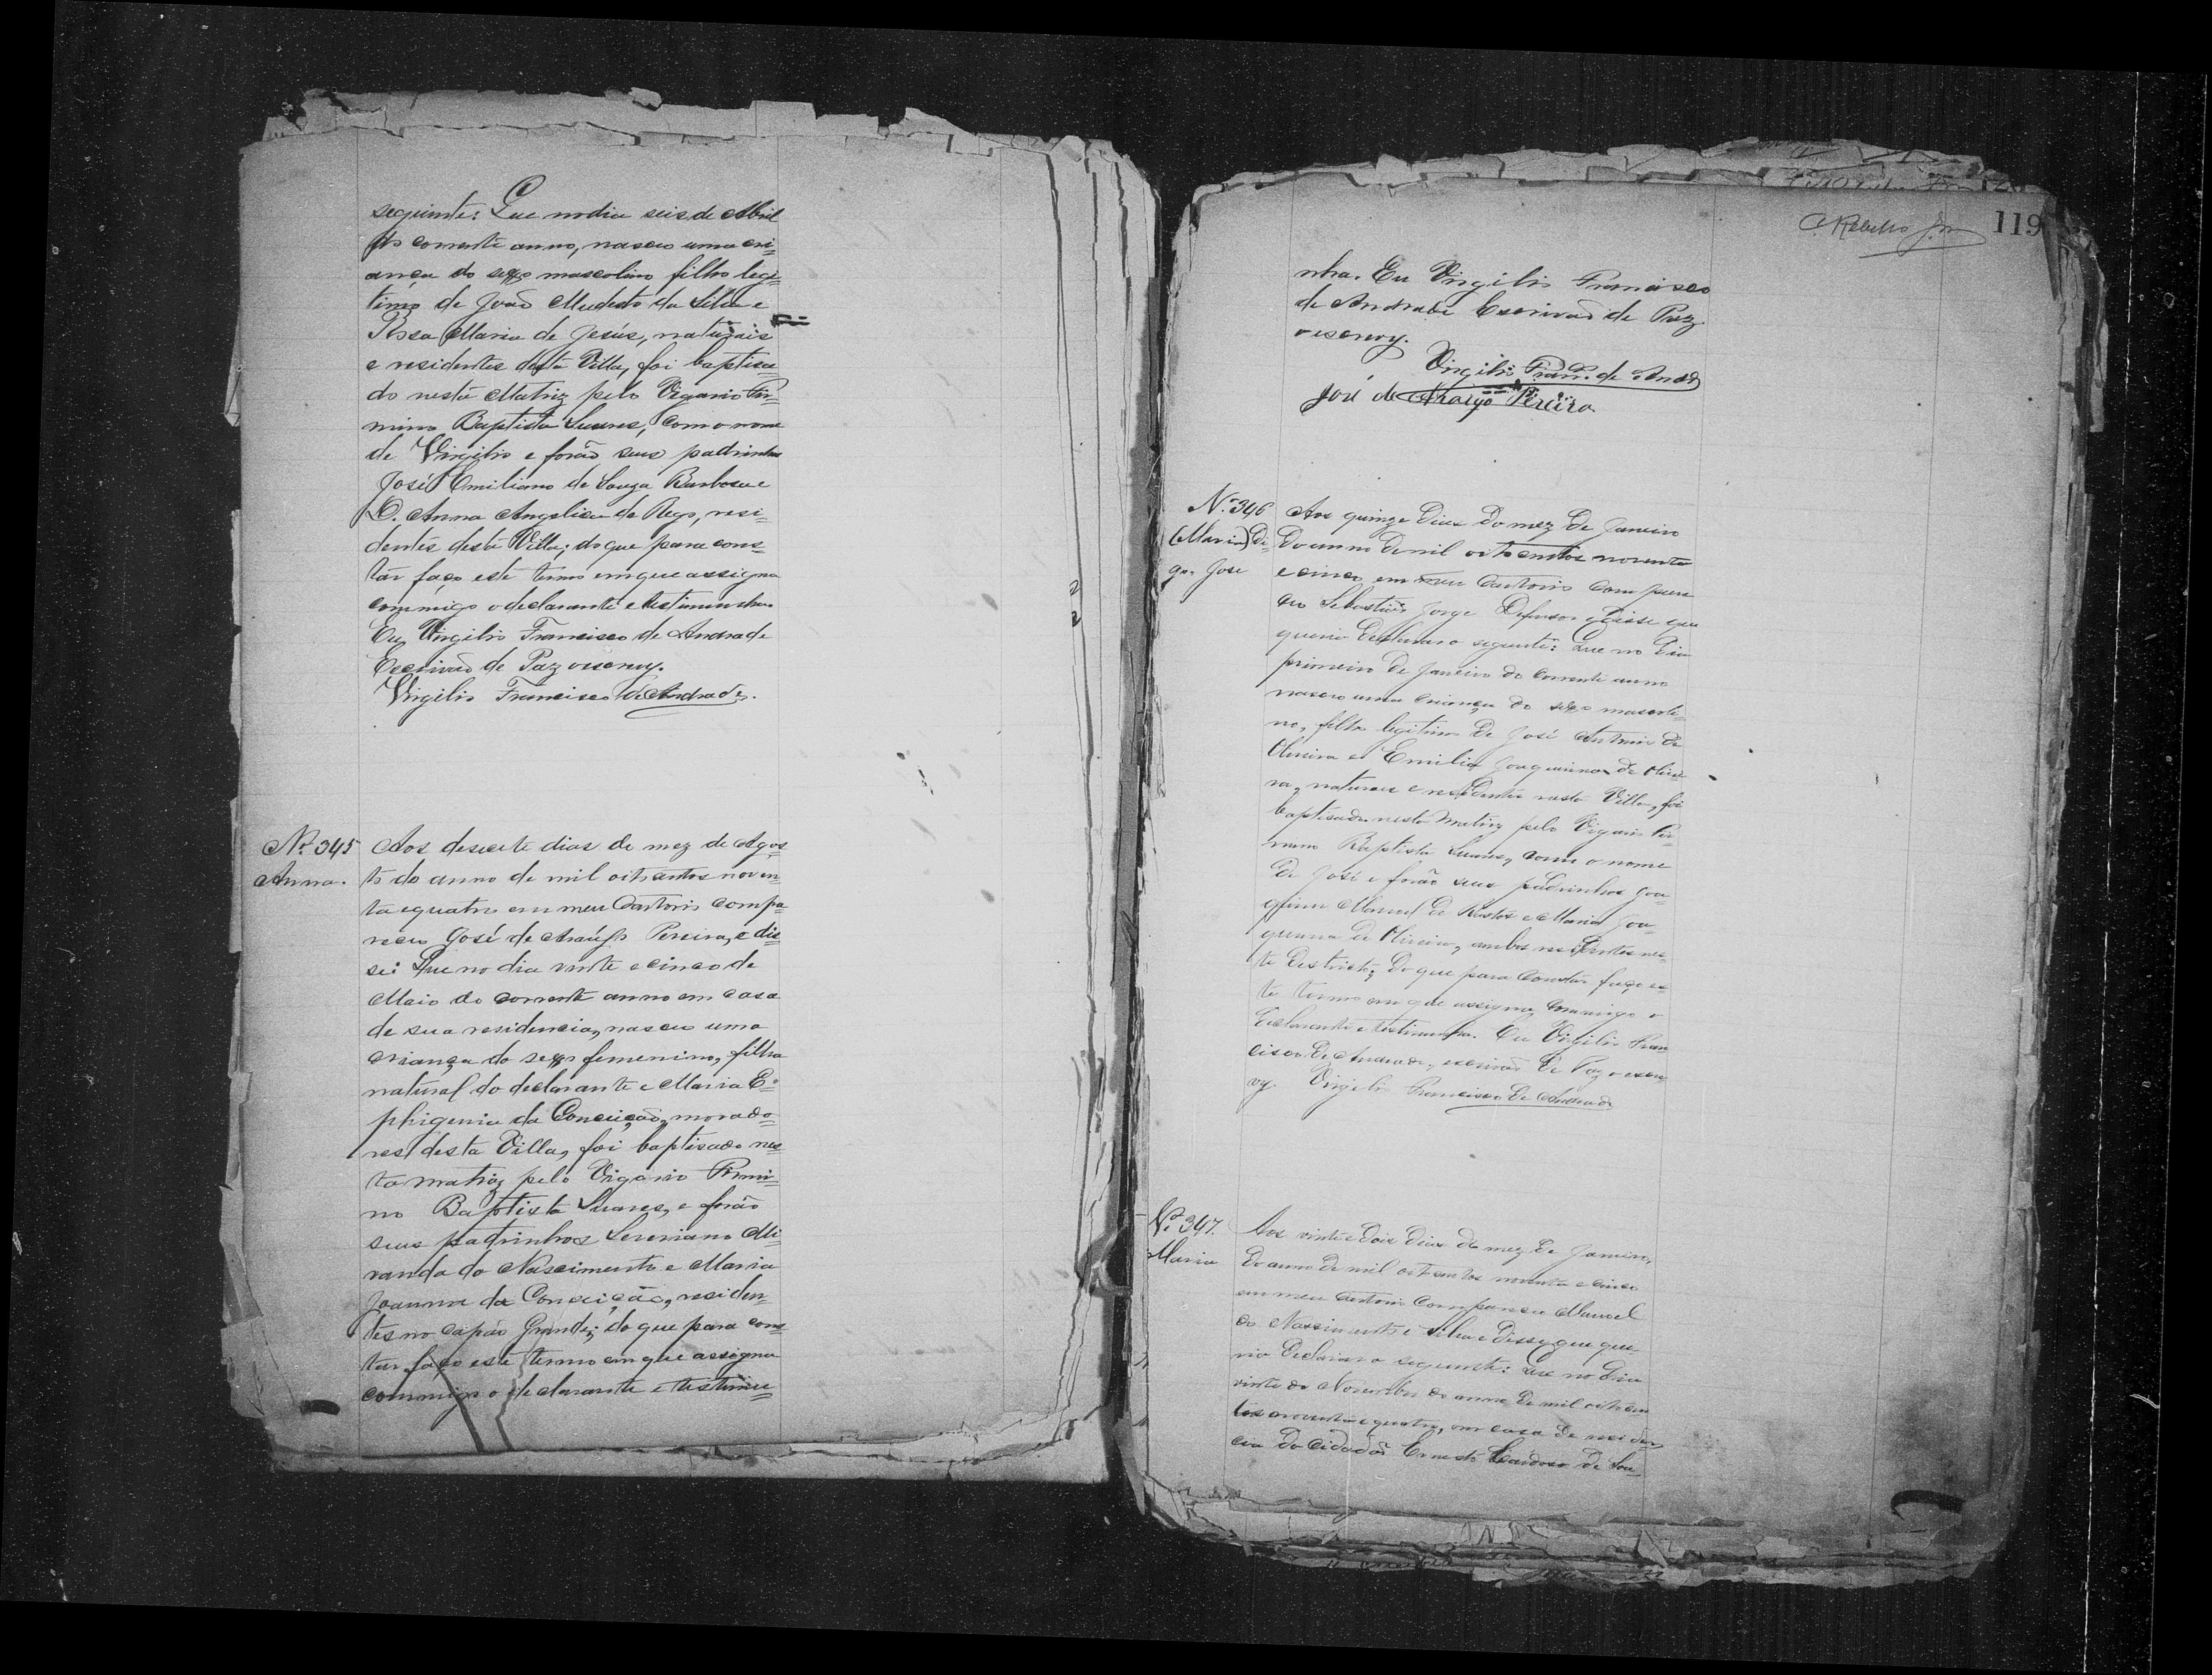 seguinte: Que no dia seis de Abril
do corrente anno, nasceu uma cri=
ança do sexo mascolino filho legi=
timo de João Mudesto da Silva e
Rosa Maria de Jesús, naturais
e residentes desta Villa, foi baptisa=
do nesta Matriz pelo Vigario Fir=
mino Baptista Suares, com o nome
de Virgilio e forão seus padrinhos
José Emiliano de Souza Barbosa e
D. Anna Angelica do Rego, resi=
dentes desta Villa; do que para cons=
tár faço este termo em que assigna
commigo o declarante e testimunha
Eu, Virgilio Francisco de Andrade
Escrivaõ de Paz o escrevy.
Virgilio Francisco de Andrade.
Nº 345
Anna.
Aos desecete dias de mez de Agos=
to do anno de mil oitcentos noven=
ta e quatro em meu Cartorio compa=
receu José de Araújo Pereira, e dis=
se: Que no dia vinte e cinco de
Maio do corrente anno em casa
de sua residencia, nasceu uma
criança do sexo femenino, filha
natural do declarante e Maria E=
phigenia da Conceição, morado=
res desta Villa, foi baptisada nes=
ta matriz pelo Vigario Firmi=
no Baptista Suares, e forão
seus padrinhos Severiano Mi=
randa do Nascimento e Maria
Joanna da Conceição, residen=
tes no Capão Grande; do que para cons=
tar faço este termo em que assigna
commigo o declarante e testimu=
C. Rebello Jor
119
nha. Eu Virgilio Francisco
de Andrade Escrivaõ de Paz
o escrevy.
Virgilio Fran. de Andr
José de Araujo Pereira
Nº 346
(Maria) Di=
go. José
Aos quinze dias do mez de Janeiro
do anno de mil oitocentos noventa
e cinco, em meu Cartorio compare
ceu Sebastião Jorge e disse que
queria declarar o seguinte: Que no dia
primeiro de Janeiro do corrente anno
nasceu uma criança do sexo mascoli=
no, filho legitimo de José Antonio de
Oliveira e Emilia Joaquinna de Olivei
ra, naturaes e residentes nesta Villa, foi
baptisado nesta Matriz pelo Vigario Fir
mino Baptista Suares, com o nome
de José e forão seus padrinhos Joa=
quim Manoel de Bastos e Maria Joa=
quinna de Oliveira, ambos residentes nes=
te Destricto; do que para constár faço es=
te termo em que assigna commigo o
declarante e testimunha. Eu Virgilio Fran
cisco de Andrade, escrivaõ de Paz o escre
vy. Virgilio Francisco de Andrade
Nº 347.
Maria
Aos vinte e dois dias do mez de Janeiro,
do anno de mil oitcentos noventa e cinco
em meu Cartorio compareceu Manoel
do Nascimento e Silva e disse que que=
ria declarar o seguinte: Que no dia
vinte de Novembro do anno de mil oitcen
tos noventa e quatro, em casa de residen
cia do cidadaõ Ernesto Cardoso de Sou